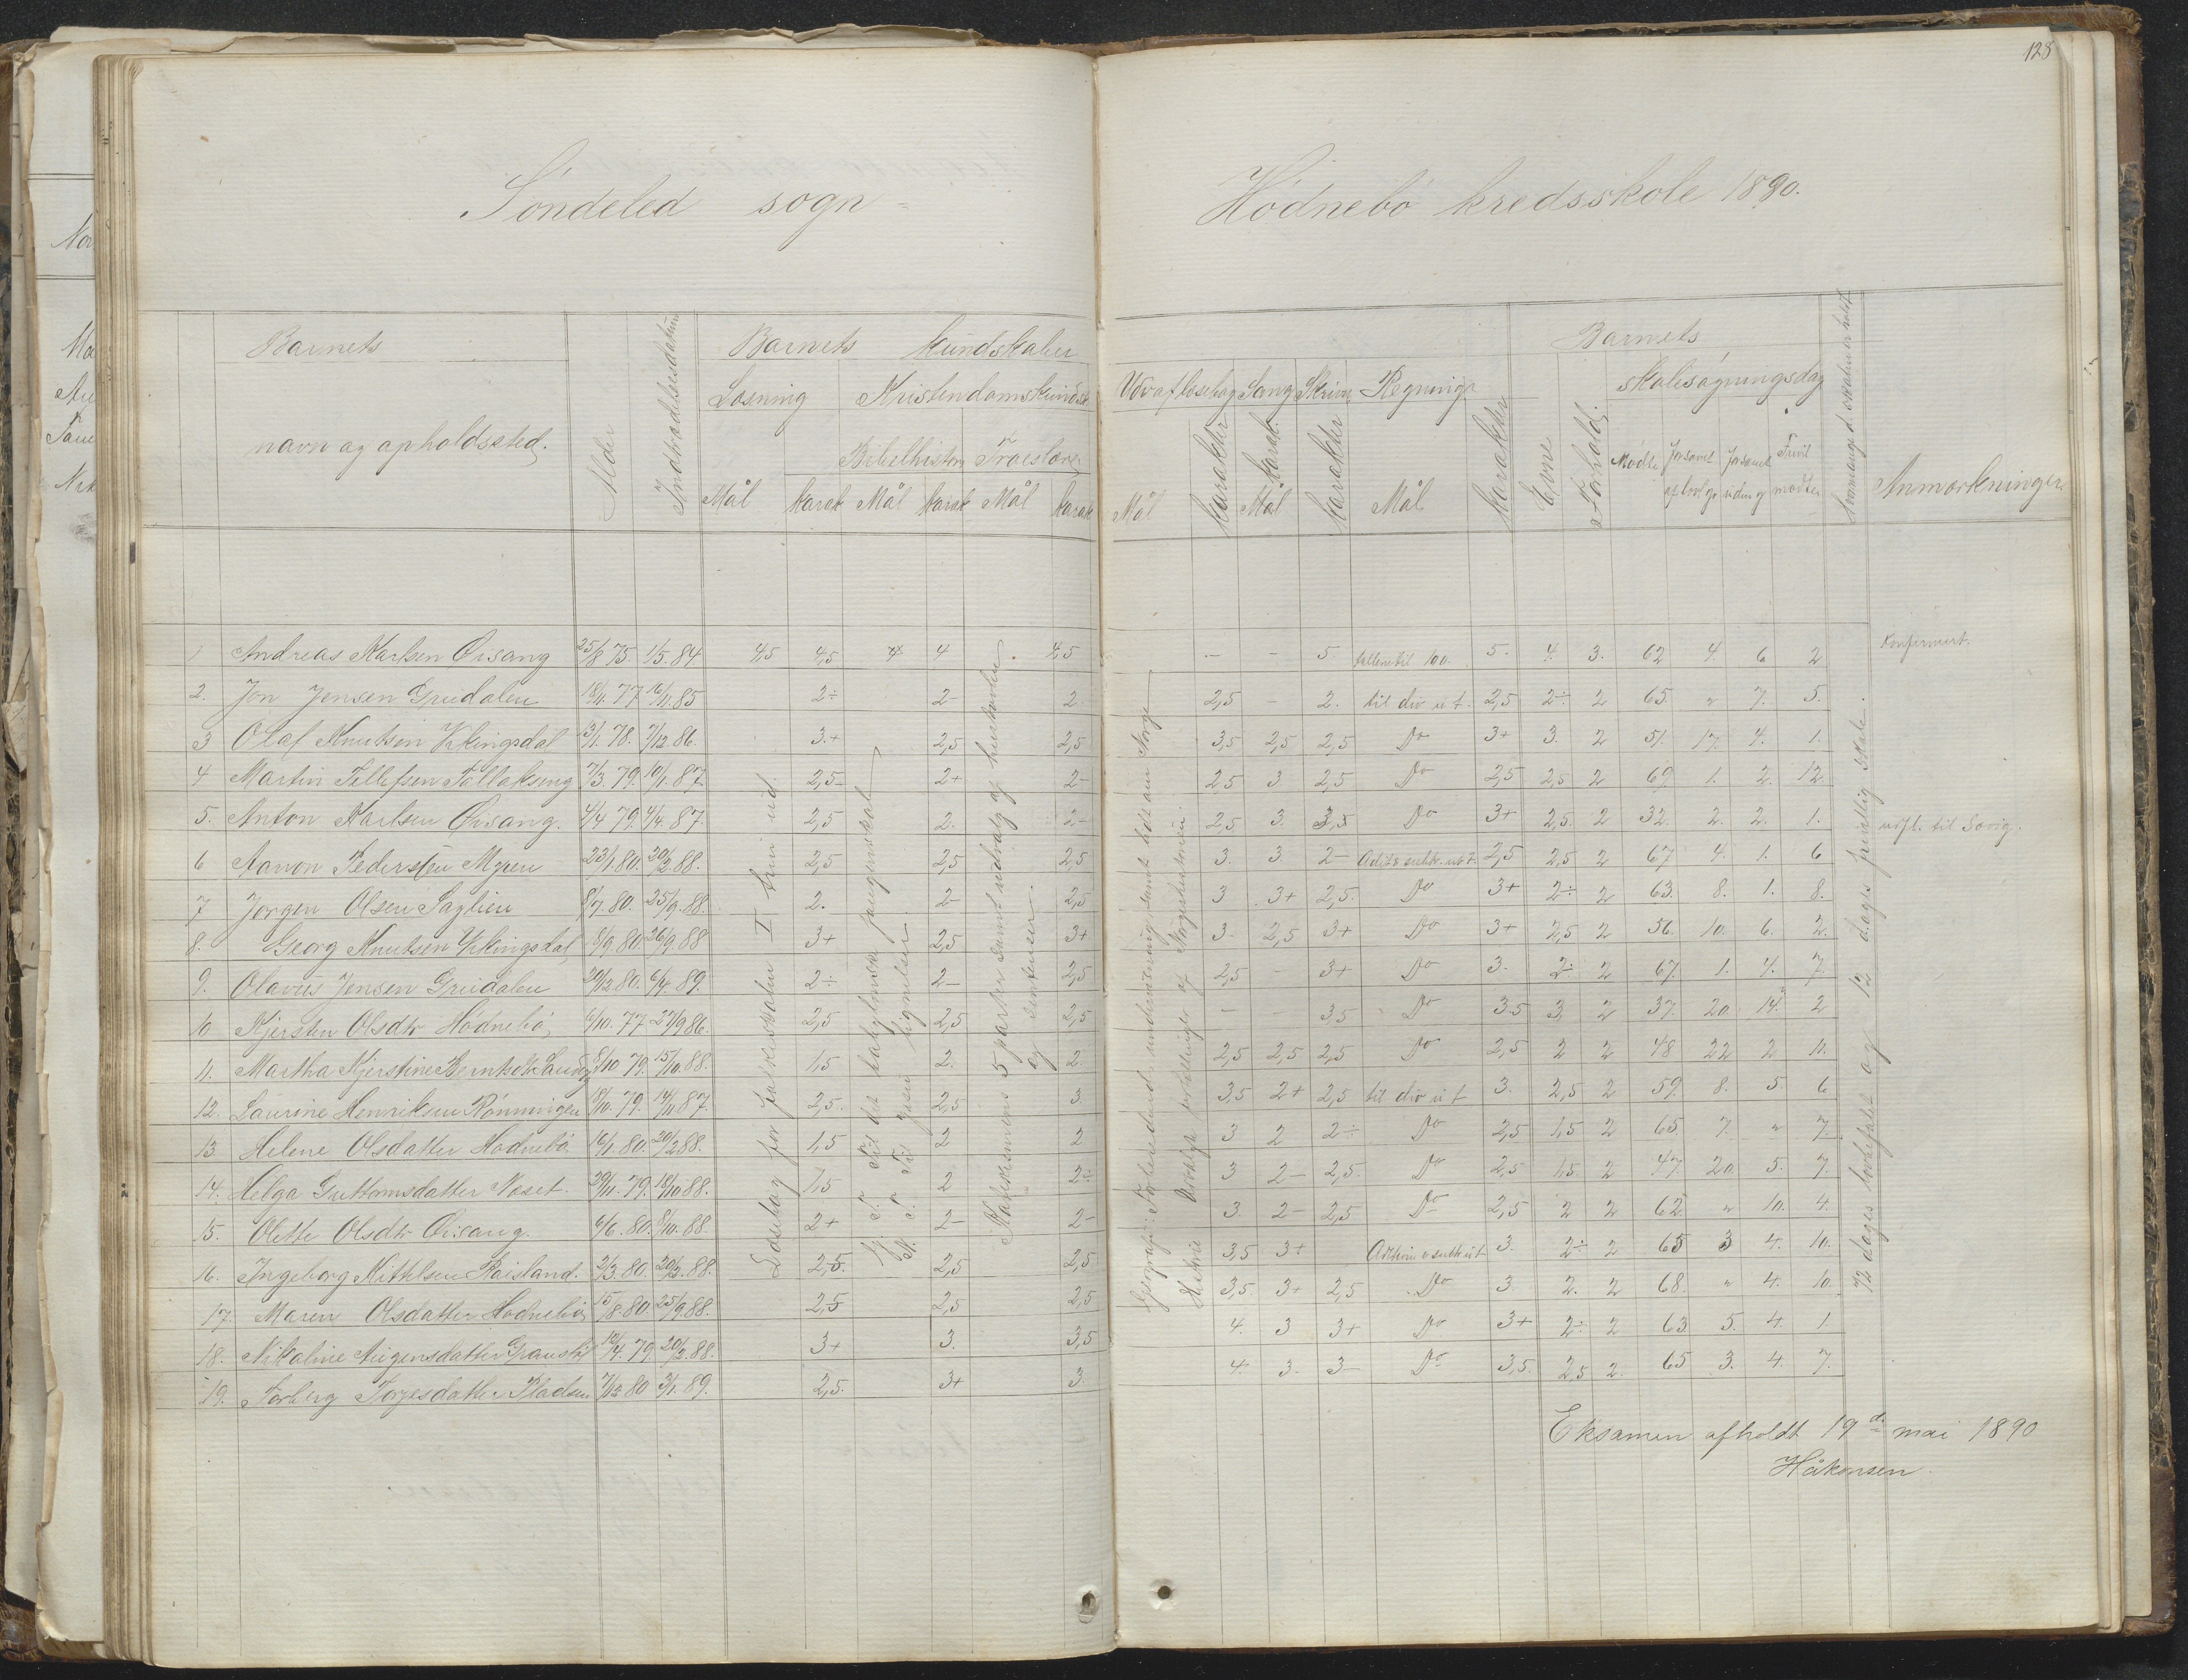 128
Söndeled sogn
Hödnebö kredsskole 1890.
Barnets
navn og opholdssted.
Alder
Indtrædelsesdatum
Barnets kundskaber
Læsning Kristendomskundsk
Bibelhistorie Troeslære
Mål Karak Mål Karak Mål Karak
Udv af læsebog Sang Skrivn Regning
Mål Karakter Mål Karak. Karakter Mål Karakter
Evne
Forhold.
Barnets
skolesøgningsdag
Mødte Forsømt af lovl gr Forsømt uden gr Frivil mødte
Anmærkninger
1 Andreas Karlsen Öisang 25/8 75. 1/5. 84 4,5 4,5 4 4 4,5 - - 5. tallene til 100. 5. 4. 3. 62 4. 6 2 Konfirmert.
2. Jon Jensen Grudalen 18/11. 77 16/11. 85 2÷ 2- 2 2,5 - 2. til div u t. 2,5 2÷ 2 65. " 7. 5.
3 Olaf Knutsen Vikingsdal 3/1. 78. 7/12. 86. 3.+ 2,5 2,5 3,5 2,5 2,5 Do 3+ 3. 2 51. 17. 4. 1.
4 Martin Tellefsen 7/3. 79. 10/1. 87. 2,5- 2+ 2- 2,5 3 2,5 Do 2,5 2,5 2 69. 1. 2. 12.
5. Anton Karlsen Öisang. 4/4 79. 4/4. 87. 2,5 2. 2- 2,5 3. 3,5 Do 3+ 2,5. 2 32. 2. 2. 1. udfl. til
6 Aanon Pedersen Myren 23/1. 80. 20/2. 88. 2,5 2,5 2,5 3. 3. 2- 2,5 2,5 2 67 4. 1. 6
7 Jorgen Olsen Saglien 8/7. 80. 25/9. 88. 2. 2- 2,5 3 3+ 2,5. Do 3+ 2÷ 2 63. 8. 1. 8.
8. Georg Knutsen Vikingsdal 8/9. 80. 26/9. 88 3+ 2,5 3+ 3. 2,5 3+ Do 3+ 2,5 2 56. 10. 6. 2.
9. Olavus Jensen Grudalen 20/12. 80. 6/4. 89. 2÷ 2- 2,5 2,5 - 3+ Do 3. 2÷ 2 67. 1. 4. 7.
10 Kjersten Olsdtr Hödnebö 6/10. 77 27/9 86. 2,5 2,5 2,5 - - 3,5 Do 3.5 3 2 37. 20. 14. 2
11. Martha Kjerstine Berntsdtr 8/10 79. 15/10. 88. 1,5 2. 2. 2,5 2,5 2,5 Do 2,5 2 2 48 22 2 11.
12. Laurine Henriksen Rönningen 18/10. 79. 14/11 87. 2,5. 2,5 3. 3,5 2+ 2,5 til div u t 3. 2,5 2 59. 8. 5. 6
13 Helene Olsdatter Hödnebö 16/1. 80. 20/2 88. 1,5 2 2 3 2 2÷ Do 2,5 1,5 2 65. 7. " 7.
14. Helga Guttormsdatter Næset. 29/11. 79. 18/10 88. 1,5 2 2÷ 3 2- 2,5. Do 2,5 1,5. 2 47. 20. 5. 7.
15. Olette Olsdtr Öisang. 6/6. 80. 8/10. 88. 2+ 2- 2- 3. 2- 2,5 Do 2,5 2 2 62. " 10. 4.
16. Ingeborg Kittelsen Röisland. 2/3. 80. 20/2. 88. 2,5. 2,5 2,5 3,5 3+ 3. 2÷ 2 65 3 4. 10.
17. Maren Olsdatter Hödnebö 15/8. 80. 25/9. 88. 2,5 2,5 2,5 3,5 3+ 2,5 Do 3. 2. 2 68. " 4. 10.
18. Nikoline 10/4. 79. 20/2. 88. 3+ 3. 3,5 4. 3 3+ Do 3+ 2÷ 2 63 5. 4. 1
19. Torberg Torjesdatter Pladsen 7/12. 80 3/1. 89. 2,5. 3+ 3. 4. 3. 3- Do 3,5. 2,5 2. 65 3. 4. 7.
Læsebog for folkeskolen I trin ud.
G. T. Til det babylonske fangenskab
N. T. Til Jesu lignelser
Katekismens 5 parter samt udvalg af hustavlen
og sentenser.
Geografi: Forberedende undervisning samt lidt om Norge
Historie Udvalgte fortællinger af Norgeshistorien.
72 dages lovbefalet og 12 dages frivillig skole.
Eksamen afholdt 19de mai 1890
Håkonsen